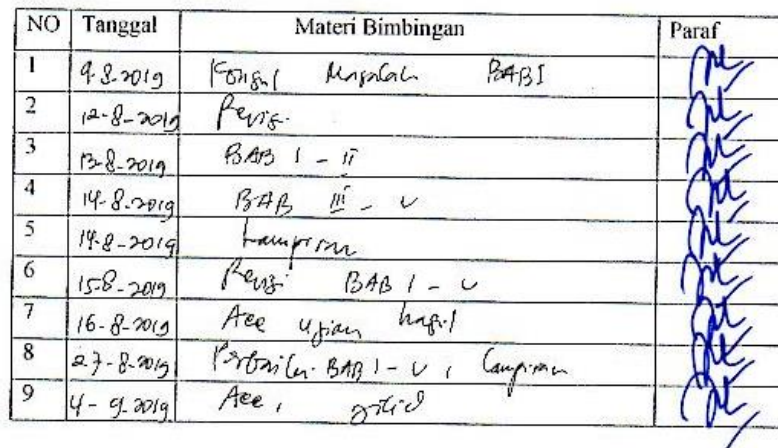 NO Tanggal Materi Bimbingan Paraf
1 9-8-2019 Konsul Masalah BAB I
2 12-8-2019 Revisi
3 13-8-2019 BAB I - II
4 14-8-2019 BAB III - V
5 14-8-2019 Lampiran
6 15-8-2019 Revisi BAB I - V
7 16-8-2019 Acc ujian hasil
8 27-8-2019 Perbaikan BAB I - V, Lampiran
9 4-9-2019 Acc,